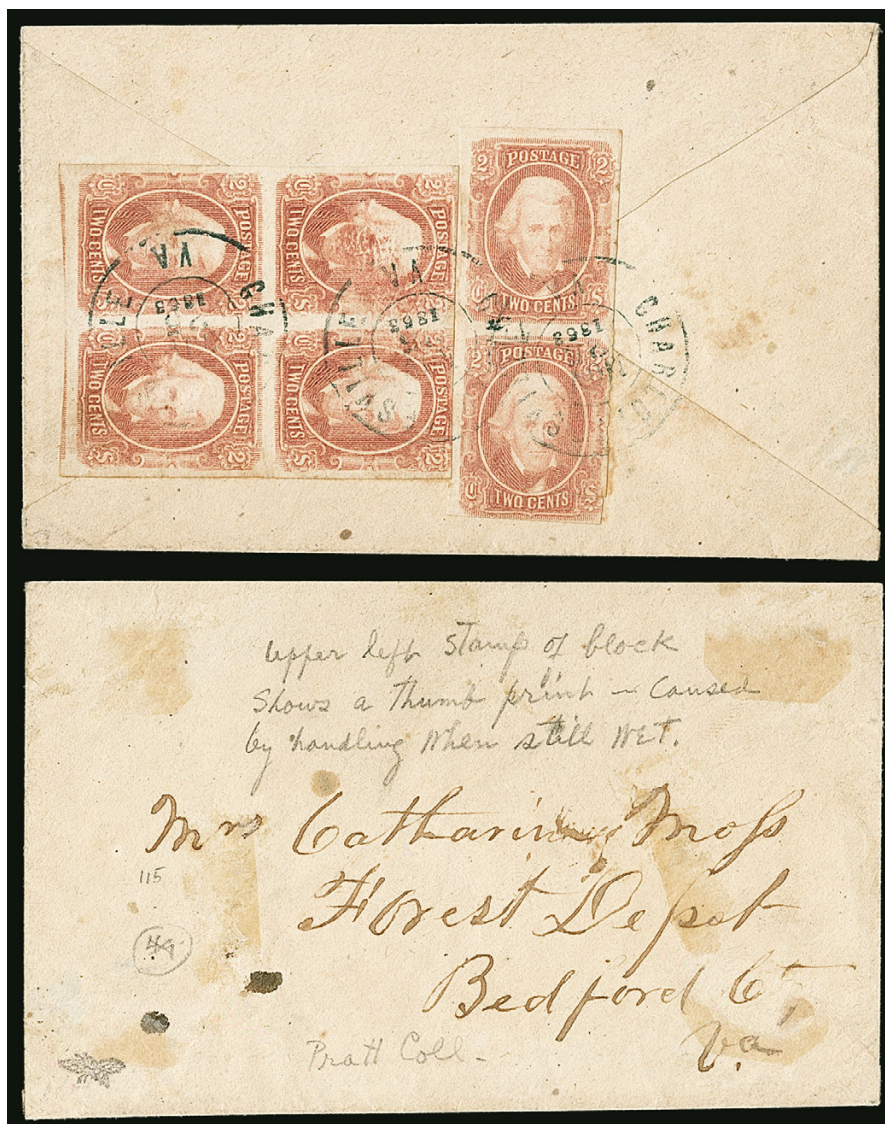 2 POSTAGE 2
TWO CENTS
2 POSTAGE 2
TWO CENTS
POSTAGE
TWO CENTS
POSTAGE
TWO CENTS
POSTAGE
TWO CENTS
POSTAGE
TWO CENTS
CHAR
VA.
1863
VILLE
VA.
1863
CHAR
1863
upper left stamp of block
shows a thumb print - caused
by handling when still WET.
Mrs Catharine Moss
115
Forest Depot
49
Bedford Ct
Va
Pratt Coll-